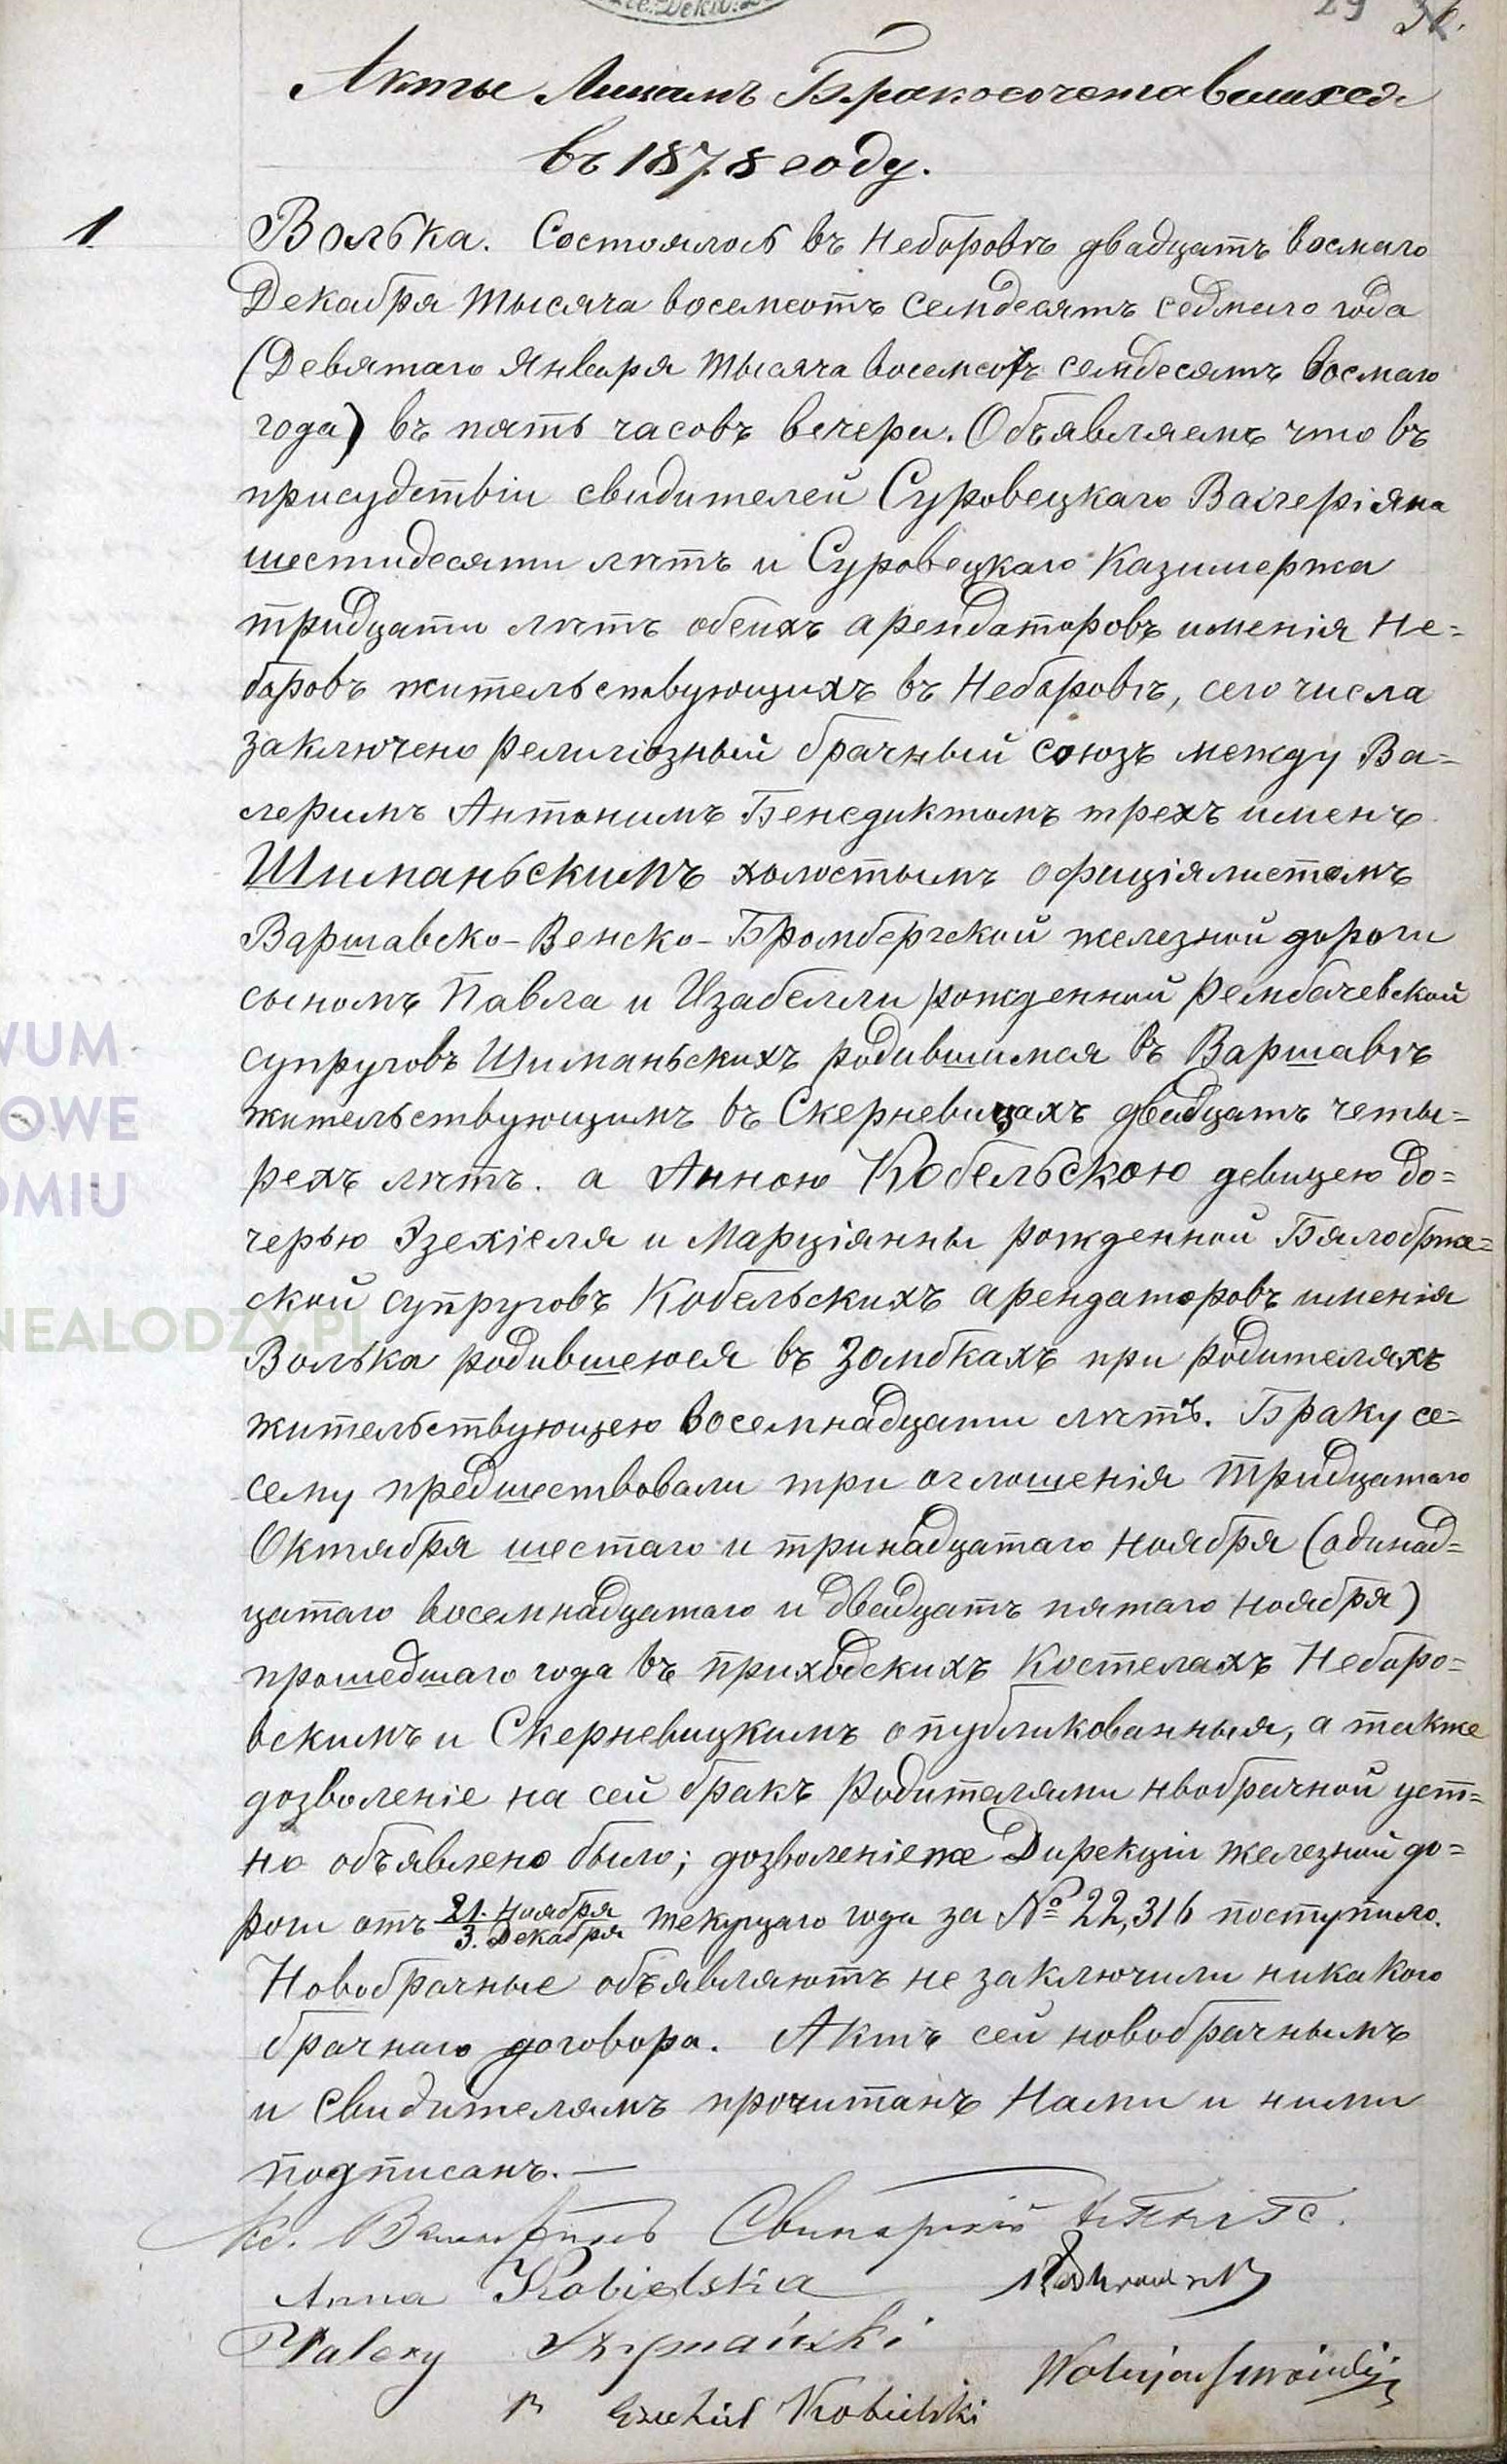 29
Акты Лицамъ Бракосочетавшихся
въ 1878 году.
1
Волька. Состоялось въ Неборовѣ двадцать восмаго
Декабря тысяча восемсотъ семдесятъ седмаго года
(Девятаго Января тысяча восемсотъ семдесятъ восмаго
года) въ пять часовъ вечера. Объявляемъ что въ
присудствіи свидителей Суровецкаго Валеріяна
шестидесяти лѣтъ и Суровецкаго Казимержа
тридцати лѣтъ обеихъ арендаторовъ именія Не=
боровъ жительствующихъ въ Неборовѣ, сего числа
заключено религіозный брачный союзъ между Ва=
леримъ Антонимъ Бенедиктомъ трехъ именъ
Шиманьскимъ холостымъ офиціялистомъ
Варшавско-Венско-Бромбергской железной дороги
сыномъ Павла и Изабелли рожденной Рембачевской
супруговъ Шиманьскихъ родившимся въ Варшавѣ
жительствующимъ въ Скерневицахъ двадцать четы=
рехъ лѣтъ. а Анною Кобельскою девицею до=
черью Эзехіеля и Марціянны рожденной Бялобрже=
ской супруговъ Кобельскихъ арендаторовъ именія
Волька родившеюся въ Зомбкахъ при родителяхъ
жительствующею восемнадцати лѣтъ. Браку се=
сему предшествовали три оглошенія тридцатаго
Октября шестаго и тринадцатаго Ноября (одинад=
цатаго восемнадцатаго и двадцать пятаго Ноября)
прошедшаго года въ приходскихъ Костелахъ Неборо=
вскимъ и Скерневицкимъ опубликованныя, а также
дозволеніе на сей бракъ родителями нвобрачной уст=
но объявлено было; дозволеніеже Дирекціи железной до=
роги отъ 21. Ноября
3. Декабря текущаго года за № 22,316 поступило.
Новобрачные объявляютъ не заключили никакого
брачнаго договора. Актъ сей новобрачнымъ
и свидителямъ прочитанъ Нами и ними
подписанъ.—
Кс. Свинарскій
Anna Kobielska
Walery Szymański
Ezechiel Kobielski
VUM
OWE
OMIU
NEALODZY.PL